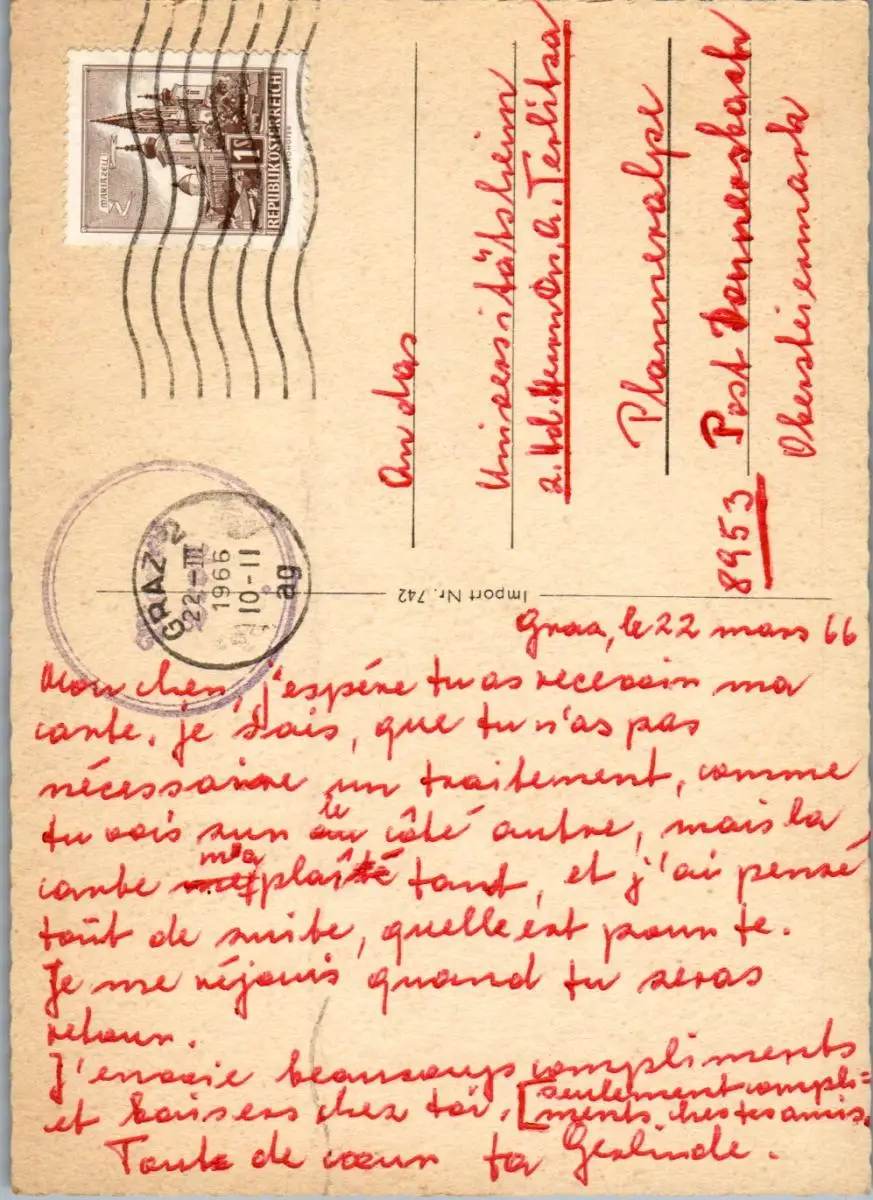 MARIAZELL
1 S
REPUBLIK ÖSTERREICH
GRAZ 2
22.-III
1966
10-11
ag
An das
Universitätsheim
z. Hd. Herrn Dr. A. Terlitza
Planneralpe
8953 Post Donnersbach
Obersteiermark
Import Nr. 742
Graz, le 22 mars 66
Mon cher, j'espére tu as recevoir ma
carte. Je sais, que tu n'as pas
nécessaire un traitement, comme
tu vois sur le côté autre, mais la
carte m'a plaîté tant, et j'ai pensé
toût de suite, quelle est pour te.
Je me réjouis quand tu seras
retour.
J'envoie beaucoups compliments
et baisers chez toi. [seulement compli=
ments chez tes amis.
Toute de cœur ta Gerlinde.